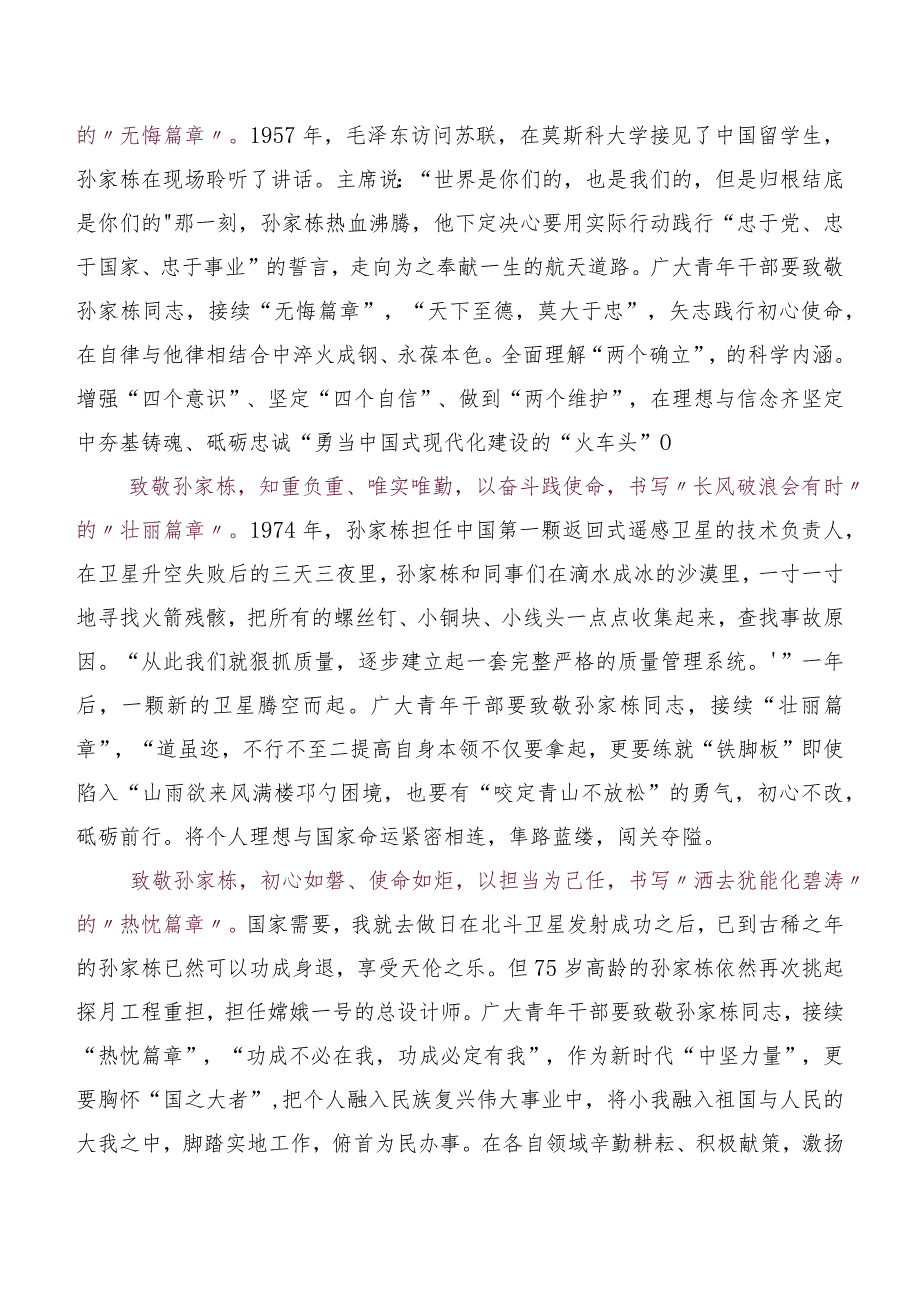 的〃无悔篇章〃。1957年，毛泽东访问苏联，在莫斯科大学接见了中国留学生，
孙家栋在现场聆听了讲话。主席说：“世界是你们的，也是我们的，但是归根结底
是你们的"那一刻，孙家栋热血沸腾，他下定决心要用实际行动践行“忠于党、忠
于国家、忠于事业”的誓言，走向为之奉献一生的航天道路。广大青年干部要致敬
孙家栋同志，接续“无悔篇章”，“天下至德，莫大于忠”，矢志践行初心使命，
在自律与他律相结合中淬火成钢、永葆本色。全面理解“两个确立”，的科学内涵。
增强“四个意识”、坚定“四个自信”、做到“两个维护”，在理想与信念齐坚定
中夯基铸魂、砥砺忠诚“勇当中国式现代化建设的“火车头”O
致敬孙家栋，知重负重、唯实唯勤，以奋斗践使命，书写〃长风破浪会有时〃
的〃壮丽篇章〃。1974年，孙家栋担任中国第一颗返回式遥感卫星的技术负责人，
在卫星升空失败后的三天三夜里，孙家栋和同事们在滴水成冰的沙漠里，一寸一寸
地寻找火箭残骸，把所有的螺丝钉、小铜块、小线头一点点收集起来，查找事故原
因。“从此我们就狠抓质量，逐步建立起一套完整严格的质量管理系统。'”一年
后，一颗新的卫星腾空而起。广大青年干部要致敬孙家栋同志，接续“壮丽篇
章”，“道虽迩，不行不至二提高自身本领不仅要拿起，更要练就“铁脚板”即使
陷入“山雨欲来风满楼邛勺困境，也要有“咬定青山不放松”的勇气，初心不改，
砥砺前行。将个人理想与国家命运紧密相连，隼路蓝缕，闯关夺隘。
致敬孙家栋，初心如磐、使命如炬，以担当为己任，书写〃洒去犹能化碧涛〃
的〃热忱篇章〃。国家需要，我就去做日在北斗卫星发射成功之后，已到古稀之年
的孙家栋已然可以功成身退，享受天伦之乐。但75岁高龄的孙家栋依然再次挑起
探月工程重担，担任嫦娥一号的总设计师。广大青年干部要致敬孙家栋同志，接续
“热忱篇章”，“功成不必在我，功成必定有我”，作为新时代“中坚力量”，更
要胸怀“国之大者”,把个人融入民族复兴伟大事业中，将小我融入祖国与人民的
大我之中，脚踏实地工作，俯首为民办事。在各自领域辛勤耕耘、积极献策，激扬